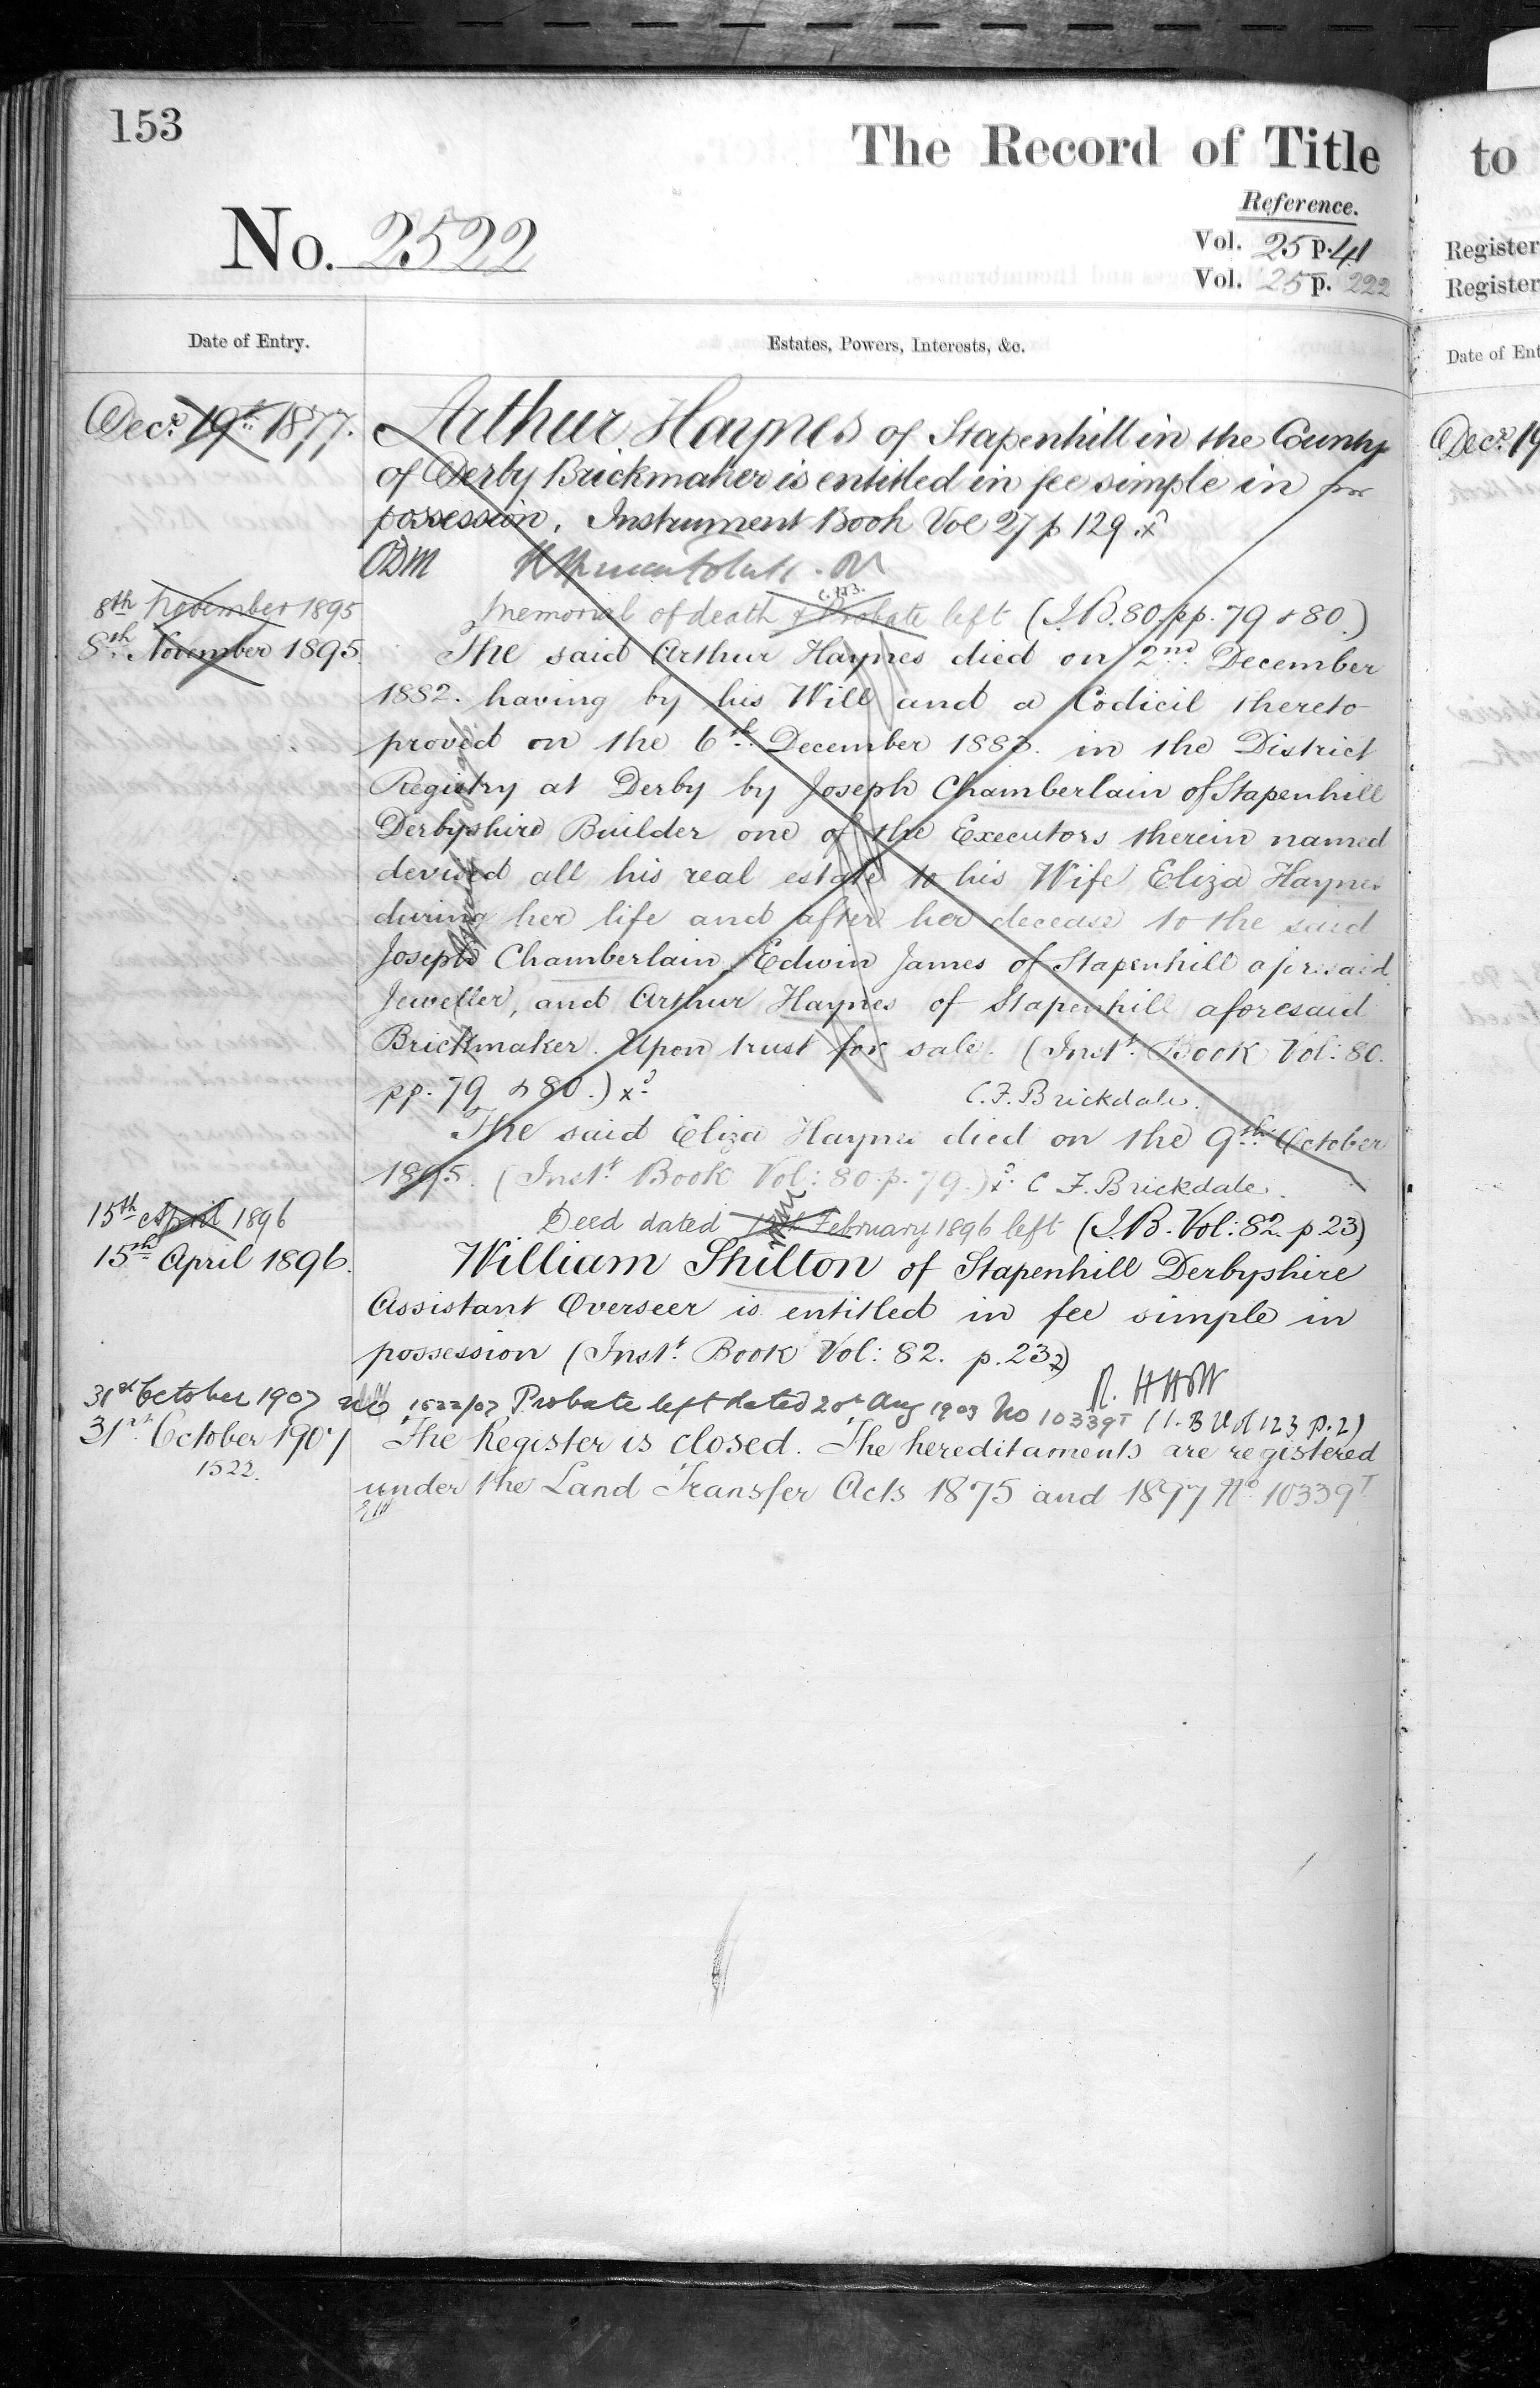 153
The Record of Title
Reference.
No. 2522
Vol. 25 p. 41
Vol. 25 p. 222
Date of Entry.
Estates, Powers, Interests, &c.
Decr. 19th 1877.
Arthur Haynes of Stapenhill in the County
of Derby Brickmaker is entitled in fee simple in
possession. Instrument Book Vol 27 p 129. xd
8th November 1895
Memorial of death & Probate left (I.B. 80. pp. 79 & 80.)
8th November 1895.
The said Arthur Haynes died on 2nd December
1882. having by his Will and a Codicil thereto
proved on the 6th December 1883. in the District
Registry at Derby by Joseph Chamberlain of Stapenhill
Derbyshire Builder one of the Executors therein named
devised all his real estate to his Wife Eliza Haynes
during her life and after her decease to the said
Joseph Chamberlain, Edwin James of Stapenhill aforesaid
Jeweller, and Arthur Haynes of Stapenhill aforesaid
Brickmaker. Upon trust for sale. (Inst. Book Vol: 80.
pp. 79 & 80.) xd
C.F. Brickdale.
The said Eliza Haynes died on the 9th October
1895. (Inst. Book Vol: 80. p. 79.) xd. C F. Brickdale.
15th April 1896
Deed dated February 1896 left (I.B. Vol: 82. p 23)
15th April 1896.
William Shilton of Stapenhill Derbyshire
Assistant Overseer is entitled in fee simple in
possession (Inst. Book Vol: 82. p. 23)
31st October 1907
1522/07 Probate left dated 20th Aug 1903 No 10339T (I.B Vol 123 p. 2)
31st October 1907
1522.
The Register is closed. The hereditaments are registered
under the Land Transfer Acts 1875 and 1897 No 10339T
to
Register
Register
Date of Ent
Decr. 19